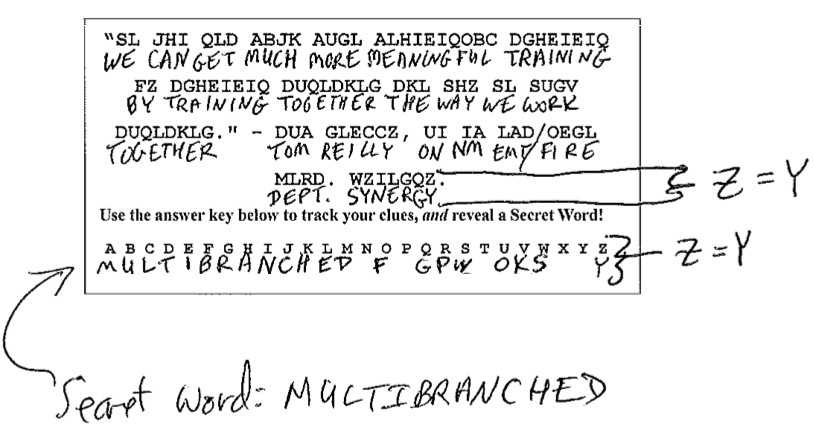 "SL JHI QLD ABJK AUGL ALHIEIQOBC DGHEIEIQ
WE CAN GET MUCH MORE MEANINGFUL TRAINING
FZ DGHEIEIQ DUQLDKLG DKL SHZ SL SUGV
BY TRAINING TOGETHER THE WAY WE WORK
DUQLDKLG." - DUA GLECCZ, UI IA LAD/OEGL
TOGETHER TOM REILLY ON NM EMT/FIRE
MLRD. WZILGQZ.
DEPT. SYNERGY. Z = Y
Use the answer key below to track your clues, and reveal a Secret Word!
A B C D E F G H I J K L M N O P Q R S T U V W X Y Z
MULTIBRANCHED F GPW OKS Y Z = Y
Secret Word: MULTIBRANCHED